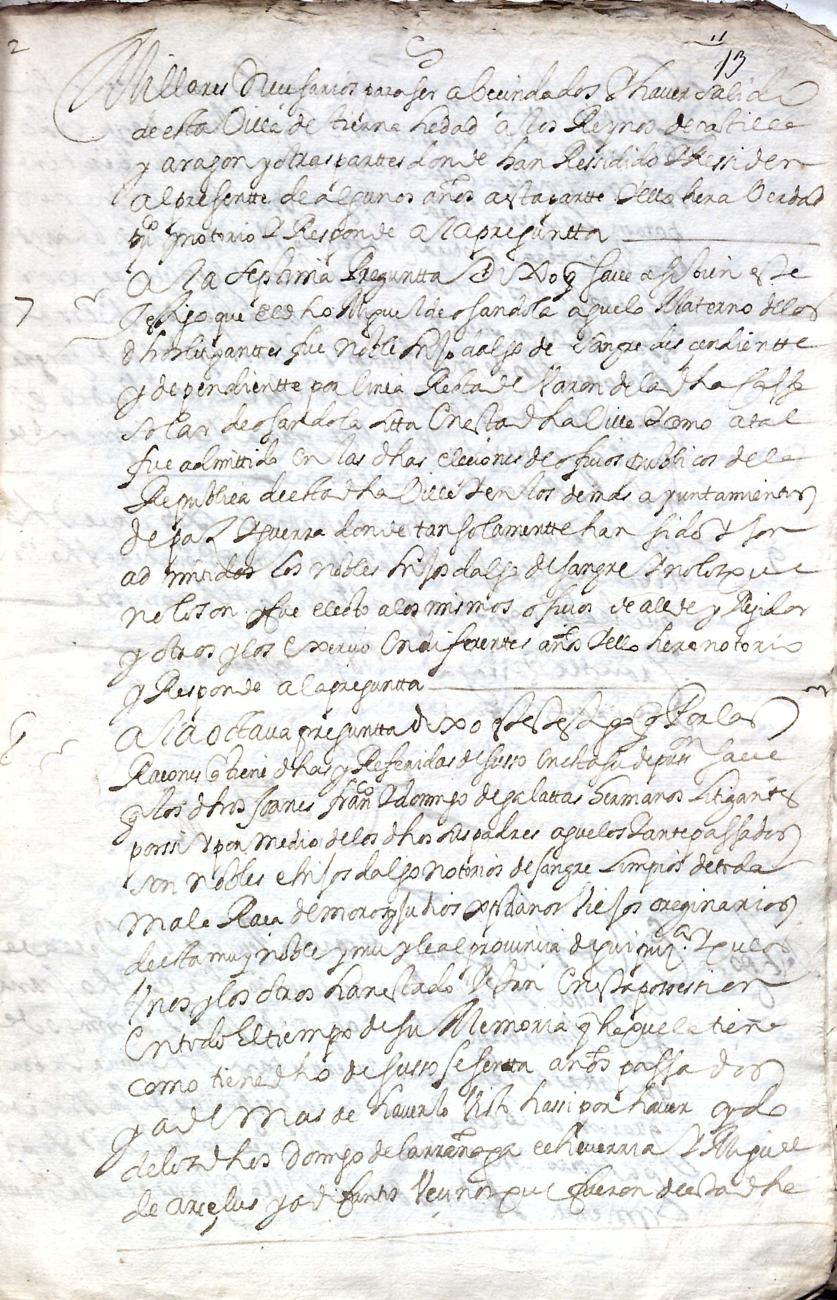 2
13
Millares Necesarios para ser abecindados y haver salido
de esta Villa de tierna hedad a los Reynos de castilla
y aragon y otras parttes donde han Ressidido y Ressiden
al presentte de algunos años a esta partte y ello hera Verdad
pu co y notorio y Responde a la preguntta
7
A la septtima Preguntta Dixo q save assi bien este
Testigo que el dho Miguel de osandola aguelo Materno de los
dhos litiganttes fue noble hijo dalgo de sangre discendientte
y dependientte por linia Recta de Varon de la dha Cassa
solar de osandola sitta en esta dha Villa y como a tal
fue admittido en las dhas eleciones de ofiçios publicos de la
Republica de esta dha Villa y en los demas ayuntamientos
de paz y guerra donde tan solamentte han sido y son
admitidos los nobles hijos dalgo de sangre y no los que
no lo son y fue electo a los mismos ofiçios de alcde y Rejidor
y otros y los exerçio en diferentes años y ello hera notorio
y Responde a la preguntta
8
A la octava preguntta dixo este testigo q Por las
Raçones q tiene dhas y Referidas de susso en esta su depon save
q los dhos Joanes franco y domingo de galattas hermanos Litigantes
por ssi y por medio de los dhos sus padres aguelos y antepassados
son nobles e hijos dalgo notorios de sangre Limpios de toda
mala Raça de moros y judios xpstianos viejos oreginarios
de esta muy noble y muy leal provincia de guipuzca y que los
Unos y los otros han estado y estan en esta possession
en todo El tiempo de su Memoria q hes que la tiene
como tiene dho de susso de sesentta años passados
y ademas de haverlo visto hassi por haver oydo
de los dhos Domingo de larrañaga echeverria y Miguel
de arcelus ya difuntos Vecinos que fueron de esta dha